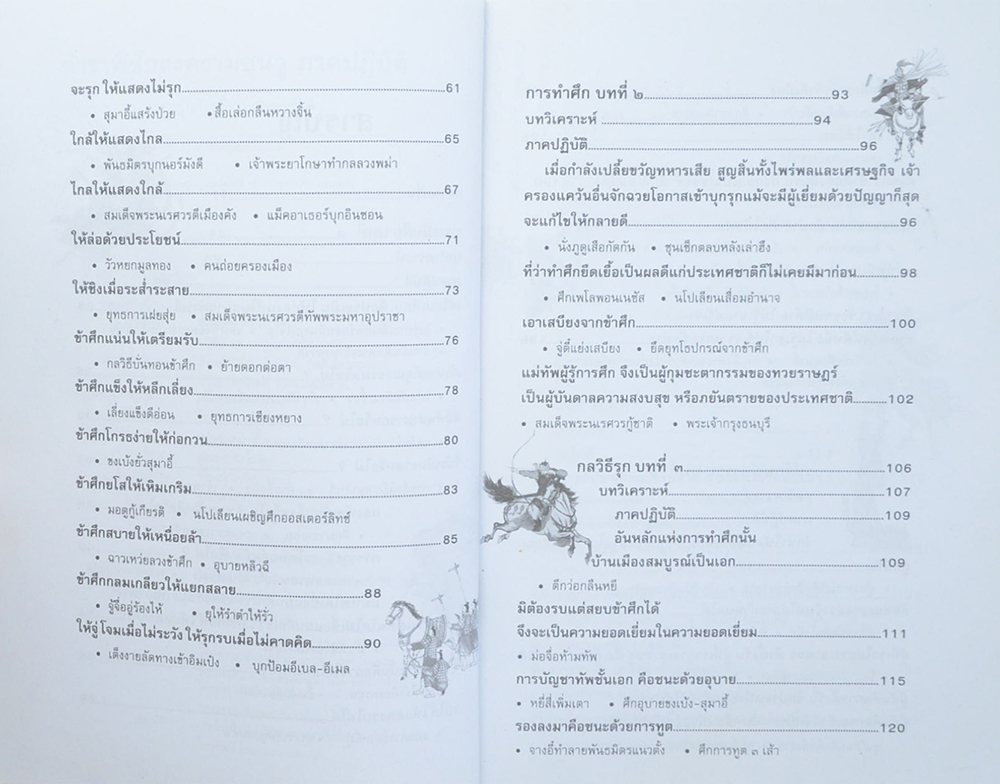 จะรุก ให้แสดงไม่รุก....................61
• สุมาอี้แสร้งป่วย • สื้อเล่อกลืนหวางจิ้น
ใกล้ให้แสดงไกล....................65
• พันธมิตรบุกนอร์มังดี • เจ้าพระยาโกษาทำกลลวงพม่า
ไกลให้แสดงใกล้....................67
• สมเด็จพระนเรศวรตีเมืองคัง • แม็คอาเธอร์บุกอินชอน
ให้ล่อด้วยประโยชน์....................71
• วัวหยกมูลทอง • คนถ่อยครองเมือง
ให้ชิงเมื่อระส่ำระสาย....................73
• ยุทธการเฝยสุ่ย • สมเด็จพระนเรศวรตีทัพพระมหาอุปราชา
ข้าศึกแน่นให้เตรียมรับ....................76
• กลวิธีบั่นทอนข้าศึก • ย้ายดอกต่อตา
ข้าศึกแข็งให้หลีกเลี่ยง....................78
• เลี่ยงแข็งตีอ่อน • ยุทธการเซียงหยาง
ข้าศึกโกรธง่ายให้ก่อกวน....................80
• ขงเบ้งยั่วสุมาอี้
ข้าศึกยโสให้เหิมเกริม....................83
• มอตูกู้เกียรติ • นโปเลียนเผชิญศึกออสเตอร์ลิทซ์
ข้าศึกสบายให้เหนื่อยล้า....................85
• ฉาวเหว่ยลวงข้าศึก • อุบายหลิวฉี
ข้าศึกกลมเกลียวให้แยกสลาย....................88
• จู้จื่ออู่ร้องไห้ • ยุให้รำตำให้รั่ว
ให้จู่โจมเมื่อไม่ระวัง ให้รุกรบเมื่อไม่คาดคิด....................90
• เต็งงายลัดทางเข้าอิมเป๋ง • บุกป้อมอีเบล-อีเมล
การทำศึก บทที่ ๒....................93
บทวิเคราะห์ ....................94
ภาคปฏิบัติ....................96
เมื่อกำลังเปลี้ยขวัญทหารเสีย สูญสิ้นทั้งไพร่พลและเศรษฐกิจ เจ้า
ครองแคว้นอื่นจักฉวยโอกาสเข้าบุกรุกแม้จะมีผู้เยี่ยมด้วยปัญญาก็สุด
จะแก้ไขให้กลายดี....................96
• นั่งภูดูเสือกัดกัน • ซุนเซ็กตลบหลังเล่าฮึง
ที่ว่าทำศึกยืดเยื้อเป็นผลดีแก่ประเทศชาติก็ไม่เคยมีมาก่อน....................98
• ศึกเพโลพอนเนซัส • นโปเลียนเสื่อมอำนาจ
เอาเสบียงจากข้าศึก....................100
• จู่ตี้แย่งเสบียง • ยึดยุทโธปกรณ์จากข้าศึก
แม่ทัพผู้รู้การศึก จึงเป็นผู้กุมชะตากรรมของทวยราษฎร์
เป็นผู้บันดาลความสงบสุข หรือภยันตรายของประเทศชาติ...........102
• สมเด็จพระนเรศวรกู้ชาติ • พระเจ้ากรุงธนบุรี
กลวิธีรุก บทที่ ๓....................106
บทวิเคราะห์....................107
ภาคปฏิบัติ....................109
อันหลักแห่งการทำศึกนั้น
บ้านเมืองสมบูรณ์เป็นเอก....................109
• ตีกว๋อกลืนหยี
มิต้องรบแต่สยบข้าศึกได้
จึงจะเป็นความยอดเยี่ยมในความยอดเยี่ยม....................111
• ม่อจื่อห้ามทัพ
การบัญชาทัพชั้นเอก คือชนะด้วยอุบาย....................115
• หยี่สี่เพิ่มเตา • ศึกอุบายขงเบ้ง-สุมาอี้
รองลงมาคือชนะด้วยการทูต....................120
• จางอี้ทำลายพันธมิตรแนวตั้ง • ศึกการทูต ๓ เส้า